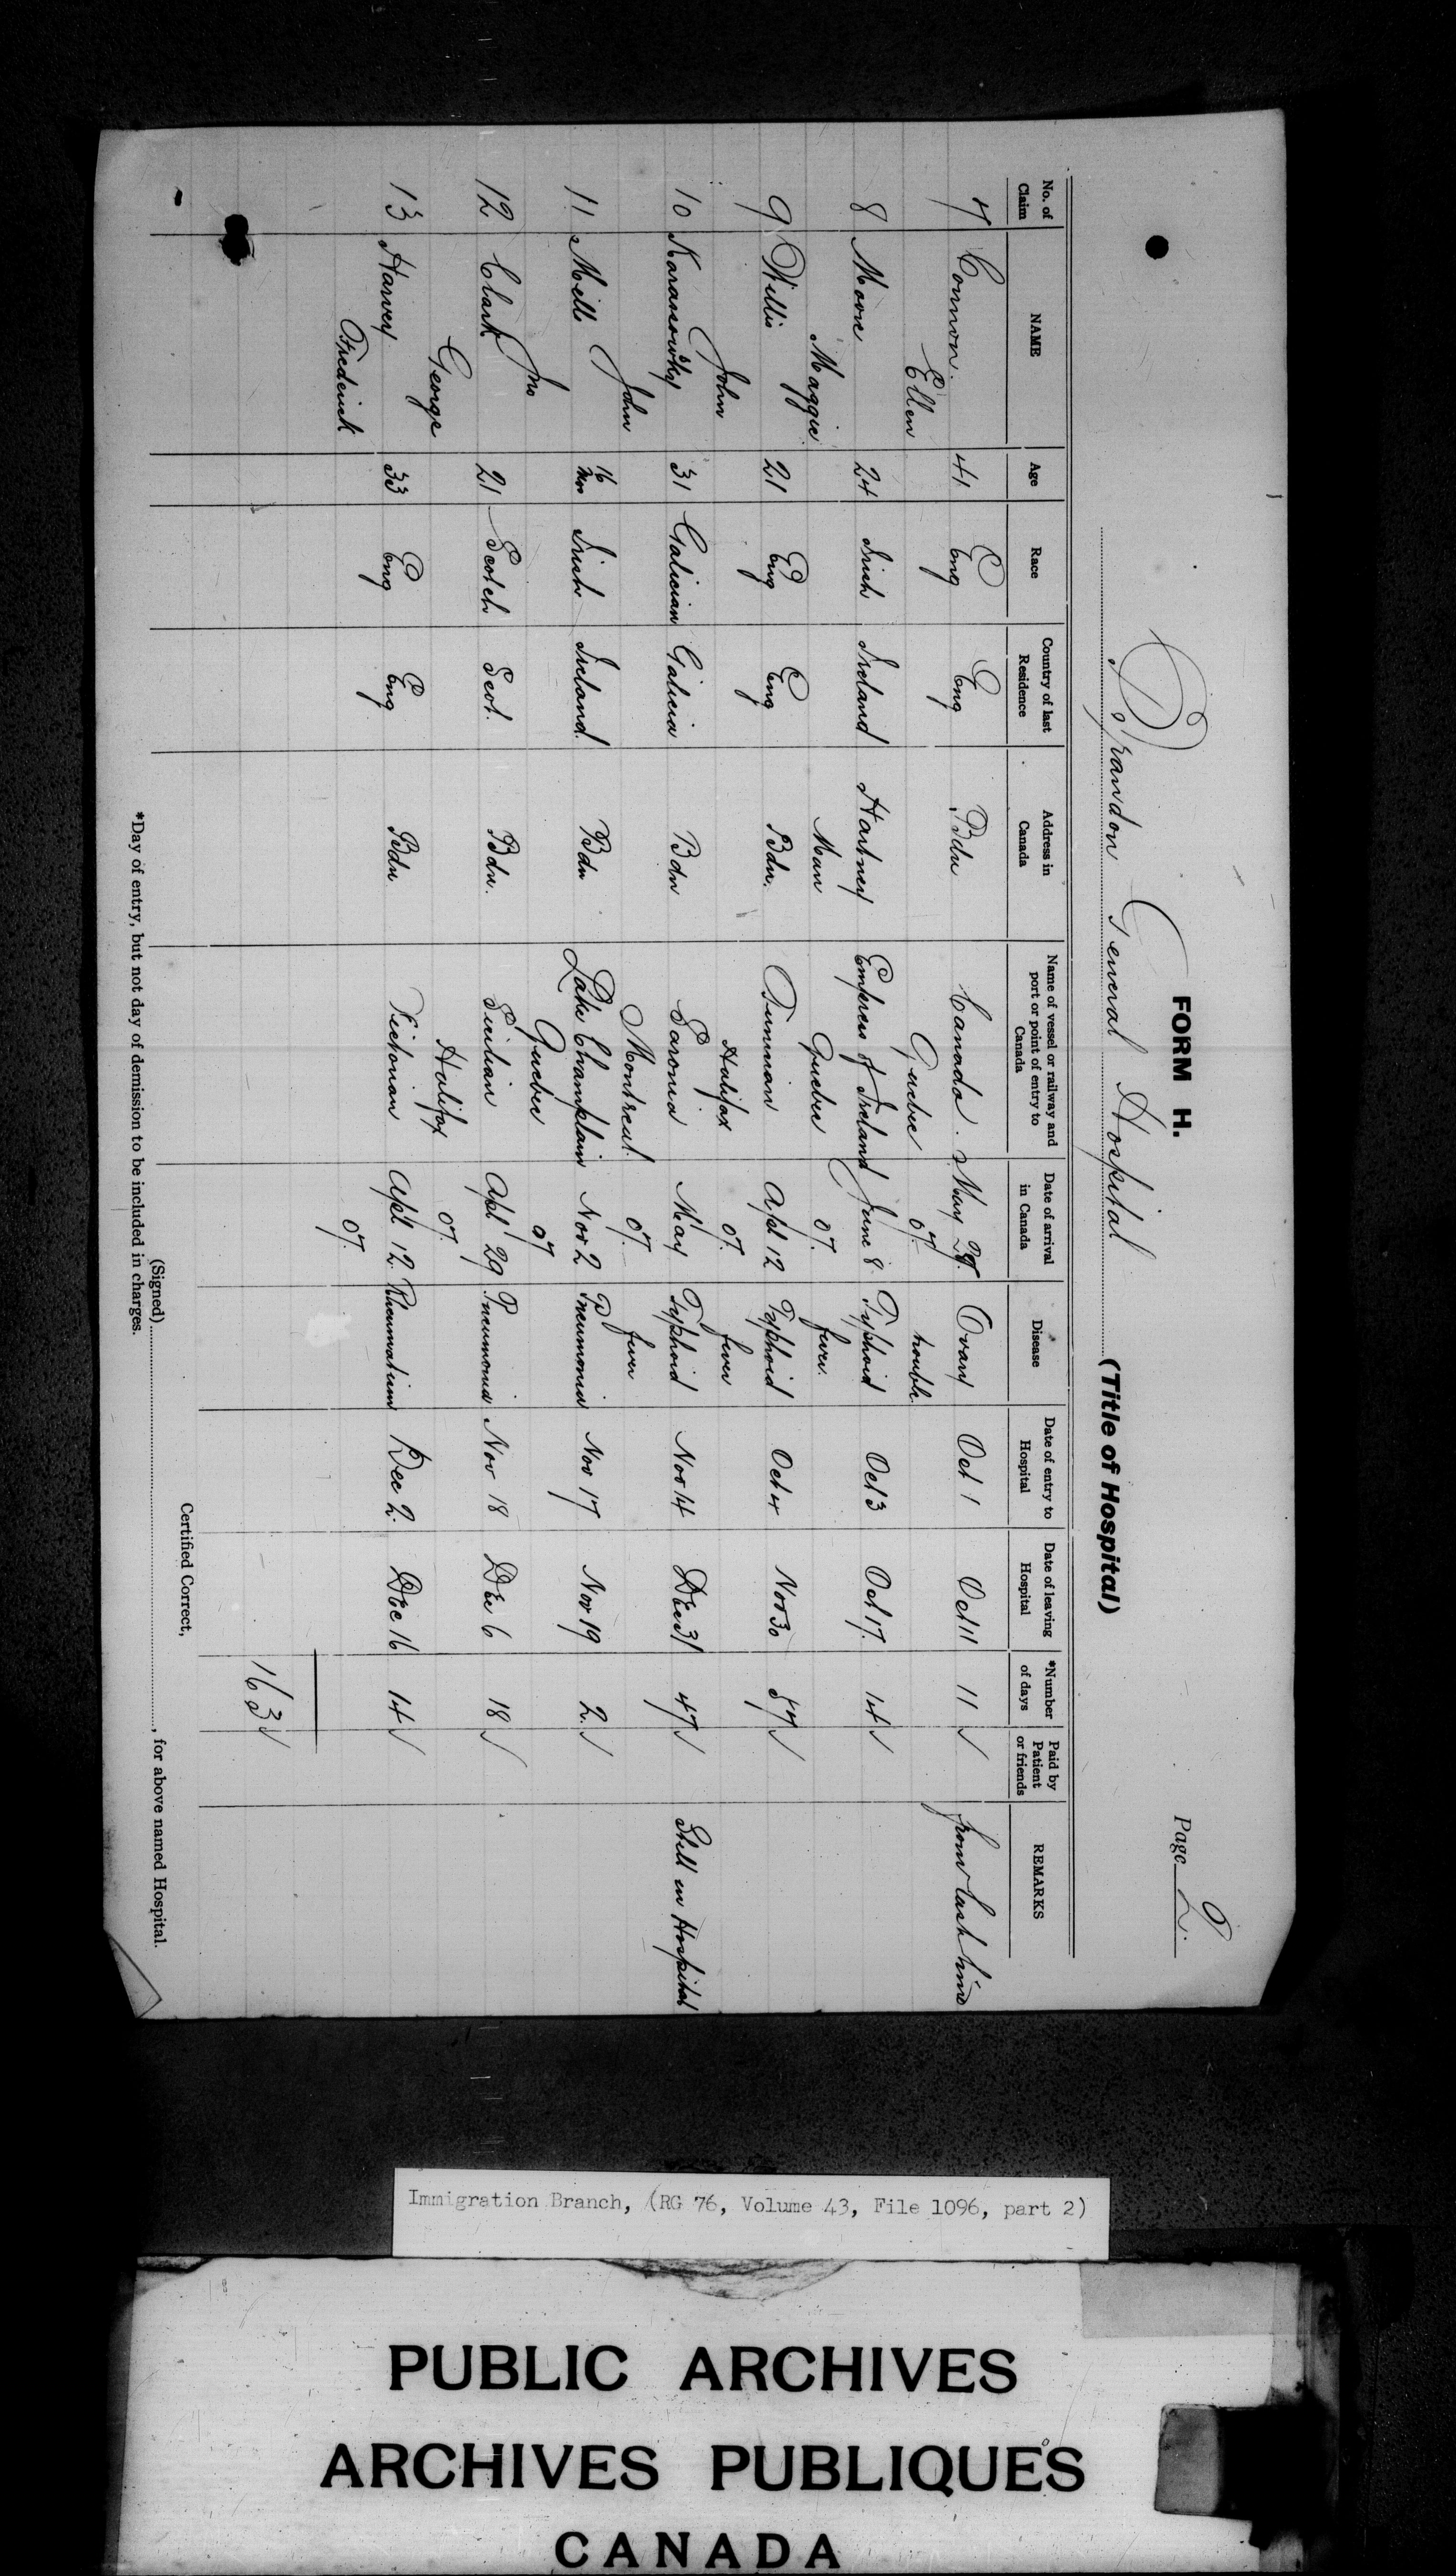 FORM H.
Page 2.
Brandon General Hospital (Title of Hospital)
No. of Claim NAME Age Race Country of last Residence Address in Canada Name of vessel or railway and port or point of entry to Canada Date of arrival in Canada Disease Date of entry to Hospital Date of leaving Hospital *Number of days Paid by Patient or friends REMARKS
7 Connon. 41 Eng Eng Bdn Canada. May 28. Ovary Oct 1 Oct 11 11 √ from last time
Ellen Quebec 07. trouble.
8 Moore 24 Irish Ireland Hartney Empress of Ireland June 8. Typhoid Oct 3 Oct 17. 14 √
Maggie Man Quebec 07. fever.
9 Willis 21 Eng Eng Bdn. Tunisian Apl 12 Typhoid Oct 4 Nov 30 57 √
John Halifax 07. fever
10 31 Galician Galicia Bdn Saronia May Typhoid Nov 14 Dec 31 47 √ Still in Hospital
John Montreal. 07. fever
11 Mills 16 Mos Irish Ireland. Bdn Lake Champlain Nov 2 Pneumonia Nov 17 Nov 19 2. √
Jno Quebec 07
12 Clark 21 Scotch Scot. Bdn. Sicilian Apl 29 Pneumonia Nov 18 Dec 6 18 √
George Halifax 07.
13 Harvey 33 Eng Eng. Bdn Victorian Apl 12. Rheumatism Dec 2. Dec 16 14 √
Frederick 07.
163 √
Certified Correct,
(Signed) , for above named Hospital.
*Day of entry, but not day of demission to be included in charges.
Immigration Branch, (RG 76, Volume 43, File 1096, part 2)
PUBLIC ARCHIVES
ARCHIVES PUBLIQUES
CANADA